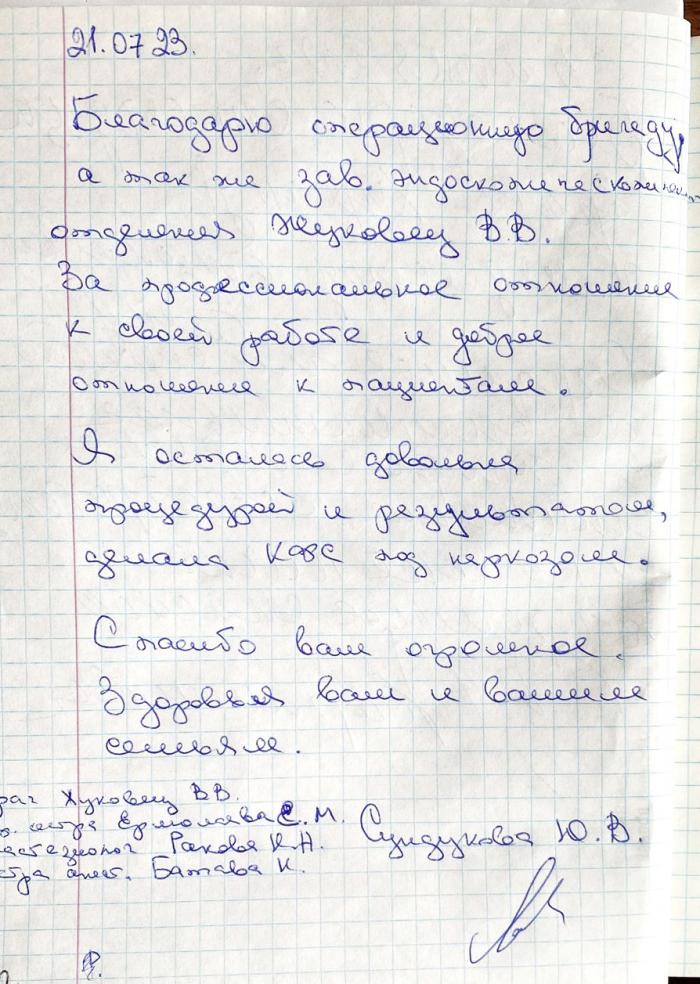 21.07 23.
Благодарю операционную бригаду,
а так же зав. эндоскопическим
отделения Жуковец В.В.
За профессиональное отношение
к своей работе и доброе
отношение к пациентам.
Я осталась довольна
процедурой и результатом,
делала КФС под наркозом.
Спасибо вам огромное.
Здоровья вам и вашим
семьям.
рач Жуковец В В.
сестра Ермолаева С. М.
Ракова Н.
стра анест. Батаева К.
Сундукова Ю. В.